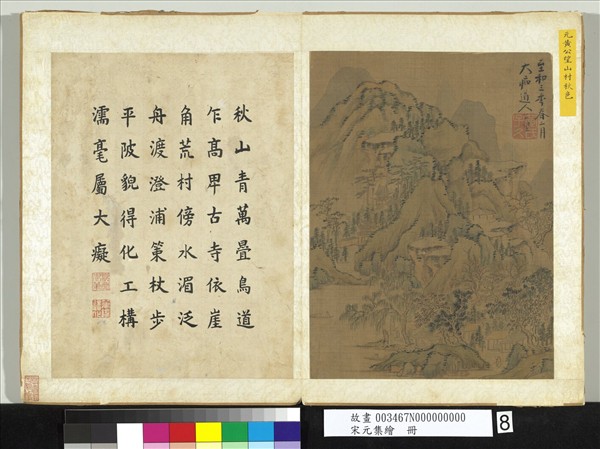 元黃公望山村秋色
大痴道人
秋山青萬疊鳥道
乍高卑古寺依崖
角荒村傍水湄泛
舟渡澄浦策杖步
平陂貌得化工構
濡毫屬大癡
故畫 003467N000000000
宋元集繪 冊
8